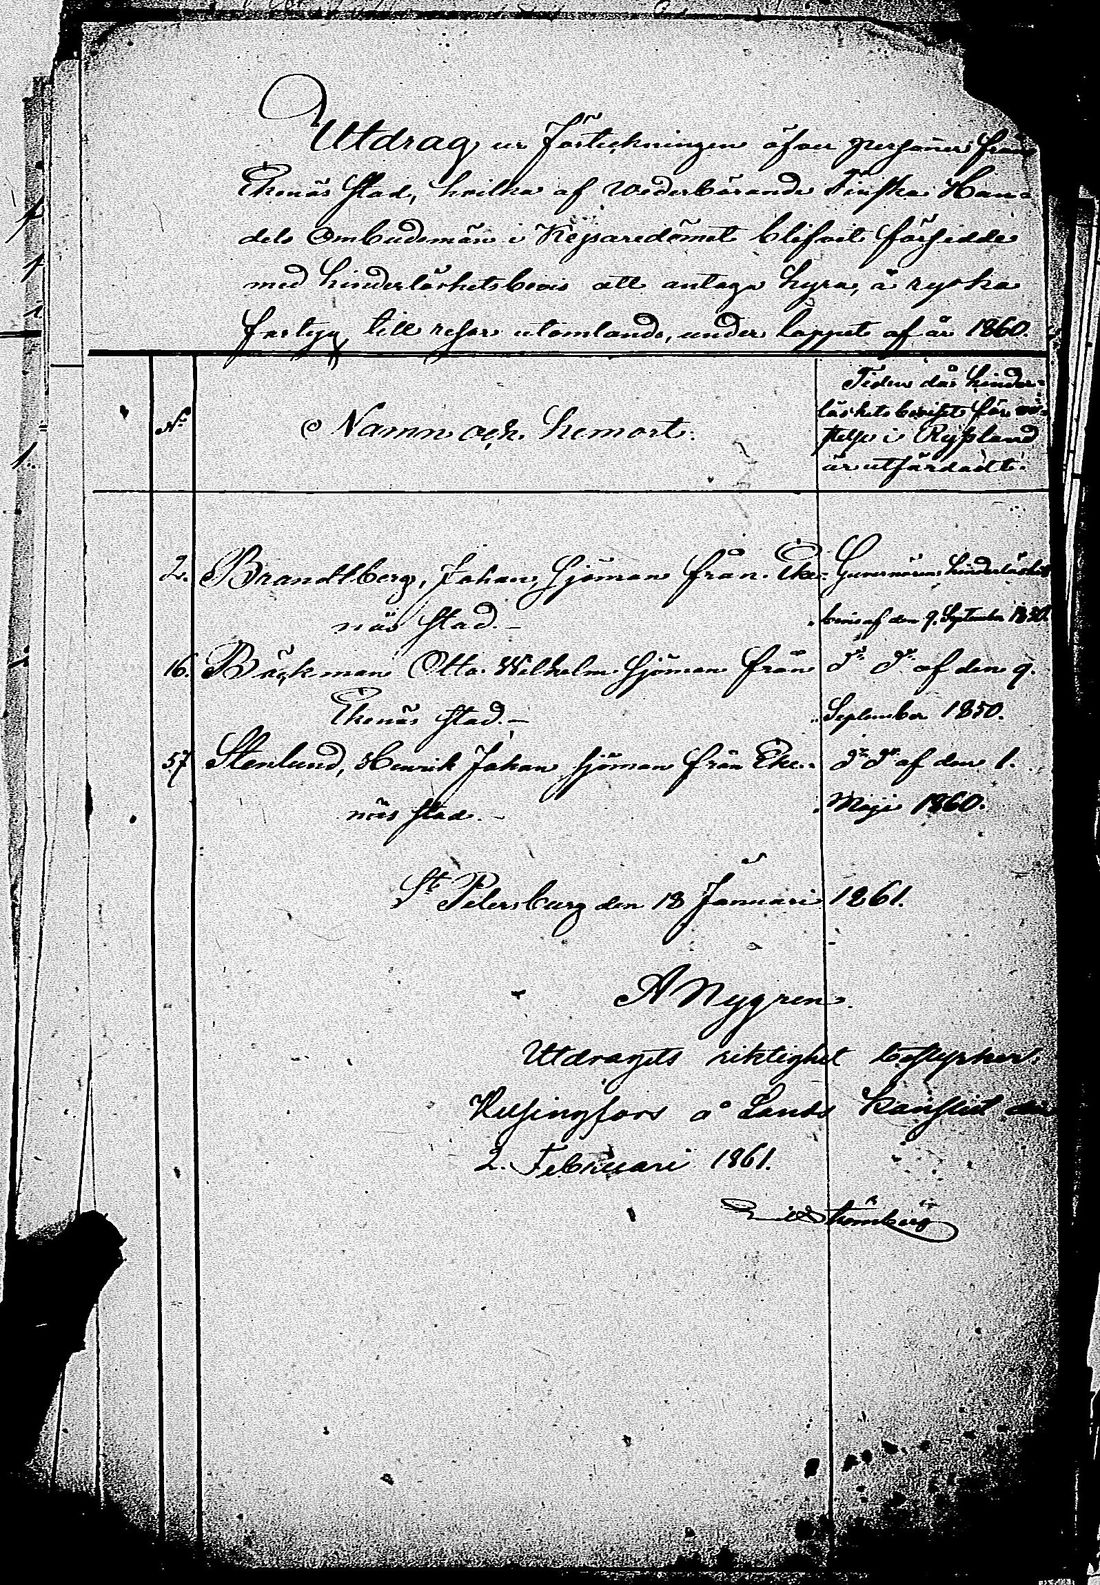 Utdrag ur Förteckningen öfver personer från
Ekenäs stad, hvilka af wederbörande Finska Han-
dels Ombudsmän i Kejsaredömet blifvit försedde
med hinderlöshetsbevis att antaga hyra, å ryska
fartyg till resor utomlands, under loppet af år 1860
No
Namn och hemort.
Tiden då hinder-
löshets beviset för vi-
stelse i Ryssland
är utfärdadt.
2. Brandtberg, Johan, sjöman från Eke- Guvernörens hinderlöshets
näs stad.- bevis af den 9. September 1850.
16. Bäckman Otto Wilhelm sjöman från do do af den 9.
Ekenäs stad.- September 1850.
57 Stenlund, Henrik Johan sjöman från Eke- do do af den 1.
näs stad.- Maji 1860.
St Petersburg den 18 Januari 1861.
A Nygren.
Utdragets riktighet bestyrker.
Helsingfors å Lands Kansliet den
2. Februari 1861.
Strömberg